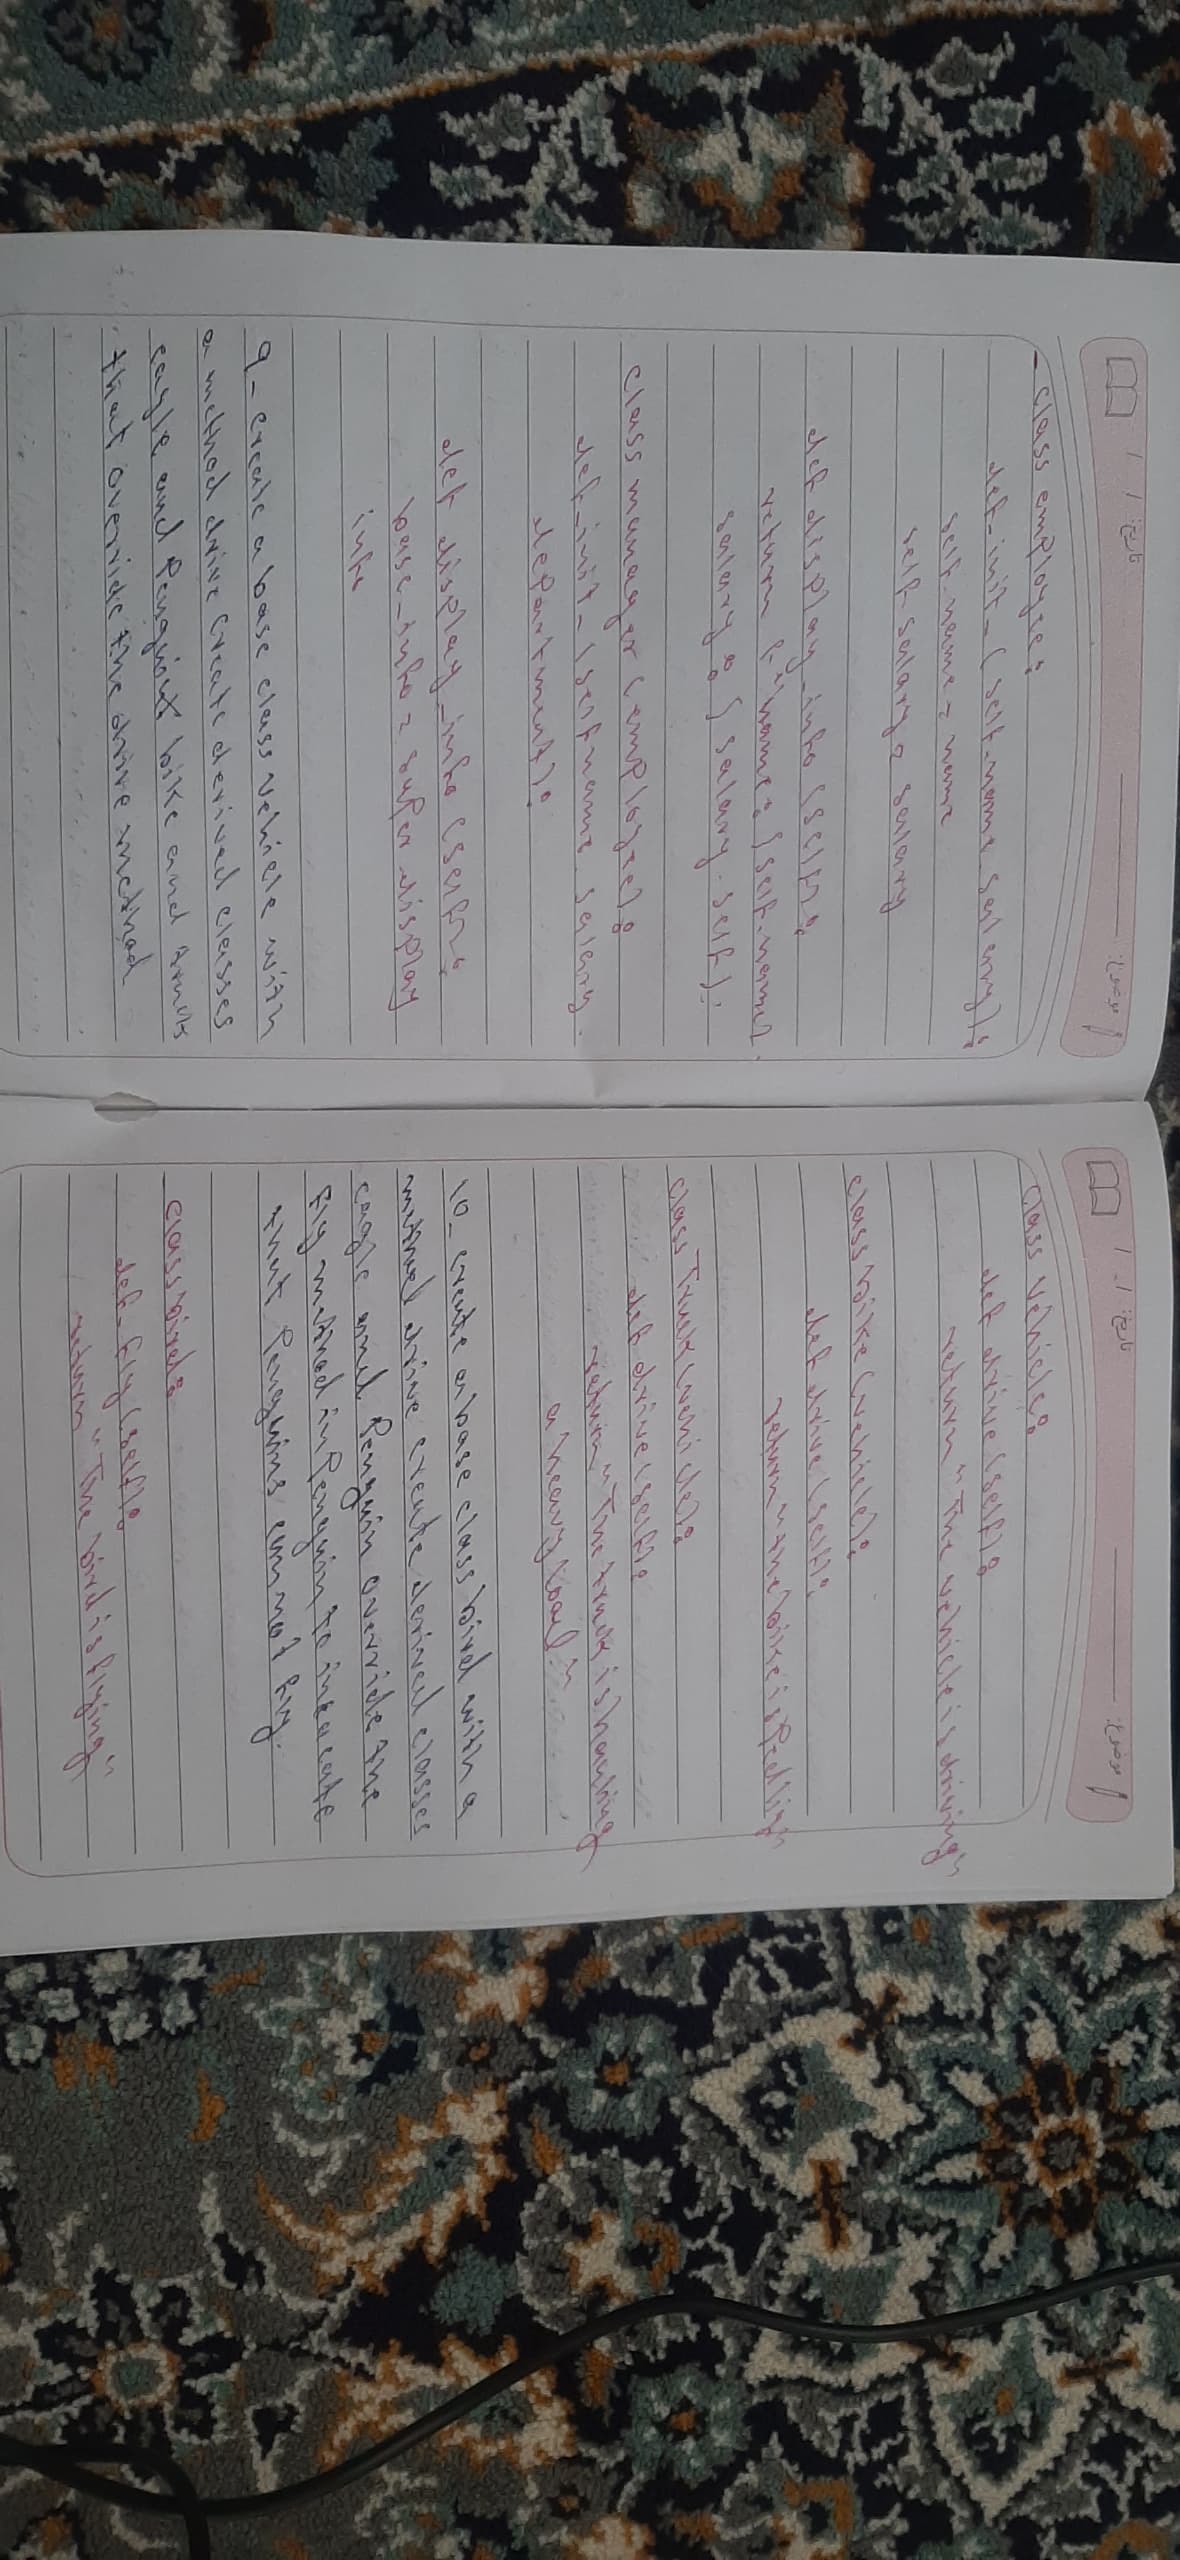 تاریخ: / / موضوع:
- class employee:
def-init-(self.name salary):
self.name = name
self-salary = salary
def display-info (self):
return f"name: {self.name}.
salary: {salary.self}"
class manager (employee):
def-init-(self name. salary.
department):
def display-info (self):
base-info = super display
info
9- create a base class vehicle with
a method drive create derived classes
eagle and bike and truck
that override the drive method
تاریخ: / / موضوع:
class vehicle:
def drive (self):
return "The vehicle is driving"
class bike (vehicle):
def drive (self):
return "the bike is
class Truck (vehicle):
def drive (self):
return "The truck is
a heavy load"
10- create a base class bird with a
method drive create derived classes
eagle and Penguin override the
fly method in Penguin to
that Penguins cannot fly.
class bird:
def-fly (self):
return "The bird is flying"